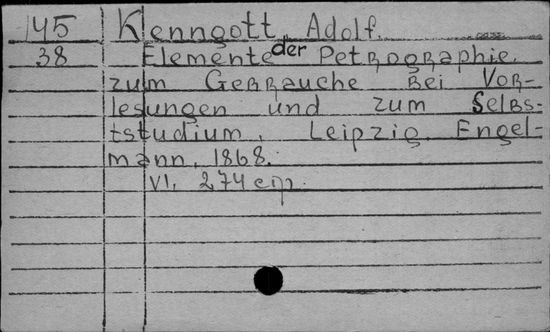 145 Kenngott, Adolf.
38 Elemente der Petrographie,
zum Gebrauche bei Vor-
lesungen und zum Selbs-
tstudium. Leipzig, Engel-
mann, 1868.
VI, 274 стр.